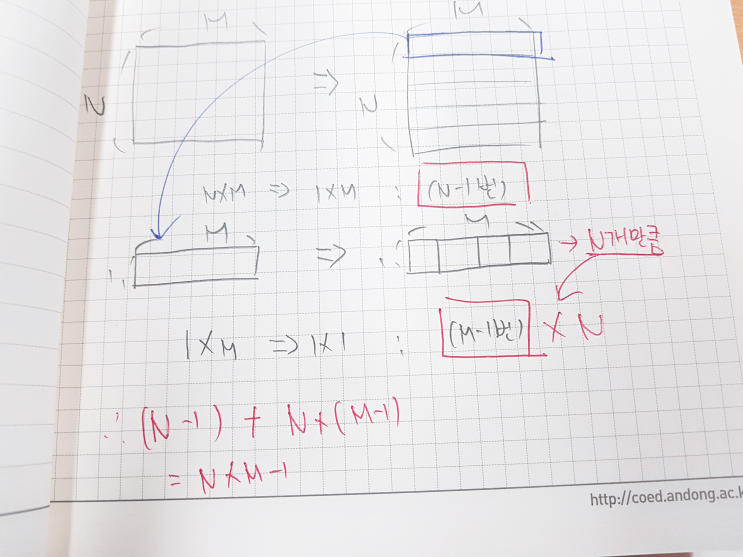 M
M
N
⇒
N
N×M ⇒ 1×M : (N-1번)
M
M
1
⇒
1
→ N개만큼
1×M ⇒ 1×1 : (M-1번) × N
∴ (N-1) + N×(M-1)
= N×M-1
http://coed.andong.ac.k